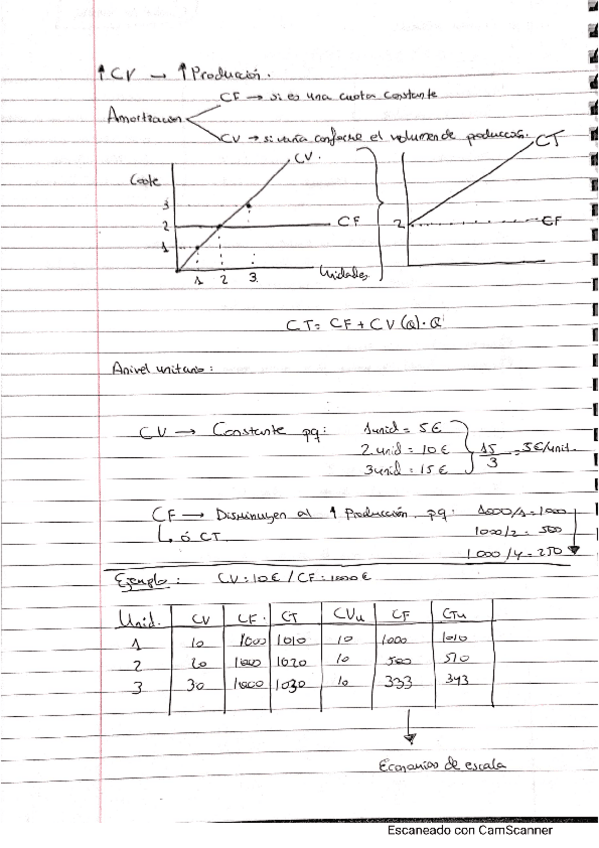 ↑CV → ↑Producción.
CF → si es una cuota constante
Amortización
CV → si varía conforme el volumen de producción.
CV.
CT
Coste
3
2
CF
2
CF
1
1 2 3
Unidades
CT = CF + CV (Q) · Q
A nivel unitario :
CV → Constante pq: 1 unid = 5€
2 unid = 10€ 15/3 = 5€/unit.
3 unid = 15€
CF → Disminuyen al ↑ Producción pq: 1000/1=1000
ó CT 1000/2 = 500
1000/4 = 250
Ejemplo: CV: 10€ / CF: 1000€
Unid. CV CF. CT CVu CF CTu
1 10 1000 1010 10 1000 1010
2 20 1000 1020 10 500 510
3 30 1000 1030 10 333 343
Economías de escala
Escaneado con CamScanner